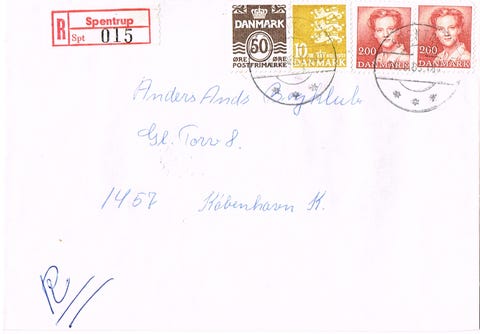 R Spentrup
Spt 015
DANMARK
50
ØRE ØRE
POSTFRIMÆRKE
10
DANMARK
200
DANMARK
200
DANMARK
Anders Ands Bogklub
Gl. Torv 8.
1457 København K.
R//